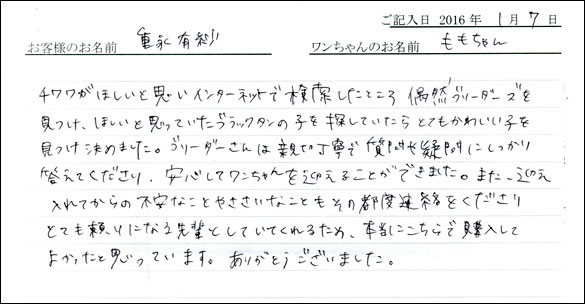 ご記入日 2016年 1月 7日
お客様のお名前 重永有紗 ワンちゃんのお名前 ももちゃん
チワワがほしいと思いインターネットで検索したところ 偶然ブリーダーズを
見つけ、ほしいと思っていたブラックタンの子を探していたらとてもかわいい子を
見つけ決めました。ブリーダーさんは親切丁寧で質問や疑問にしっかり
答えてくださり、安心してワンちゃんを迎えることができました。また、迎え
入れてからの不安なことやささいなこともその都度連絡をくださり
とても頼りになる先輩としていてくれるため、本当にこちらで購入して
よかったと思っています。ありがとうございました。